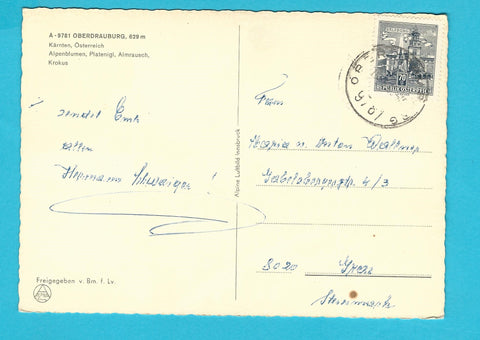 A-9781 OBERDRAUBURG, 629 m
Kärnten, Österreich
Alpenblumen, Platenigl, Almrausch,
Krokus
! sendet Euch
allen
Hermann Schwaiger!
Freigegeben v. Bm. f. Lv.
Alpine Luftbild Innsbruck
REPUBLIK ÖSTERREICH
70
Fam
Maria u. Anton
Gabelsbergerstr. 4/3
8020 Graz
Steiermark